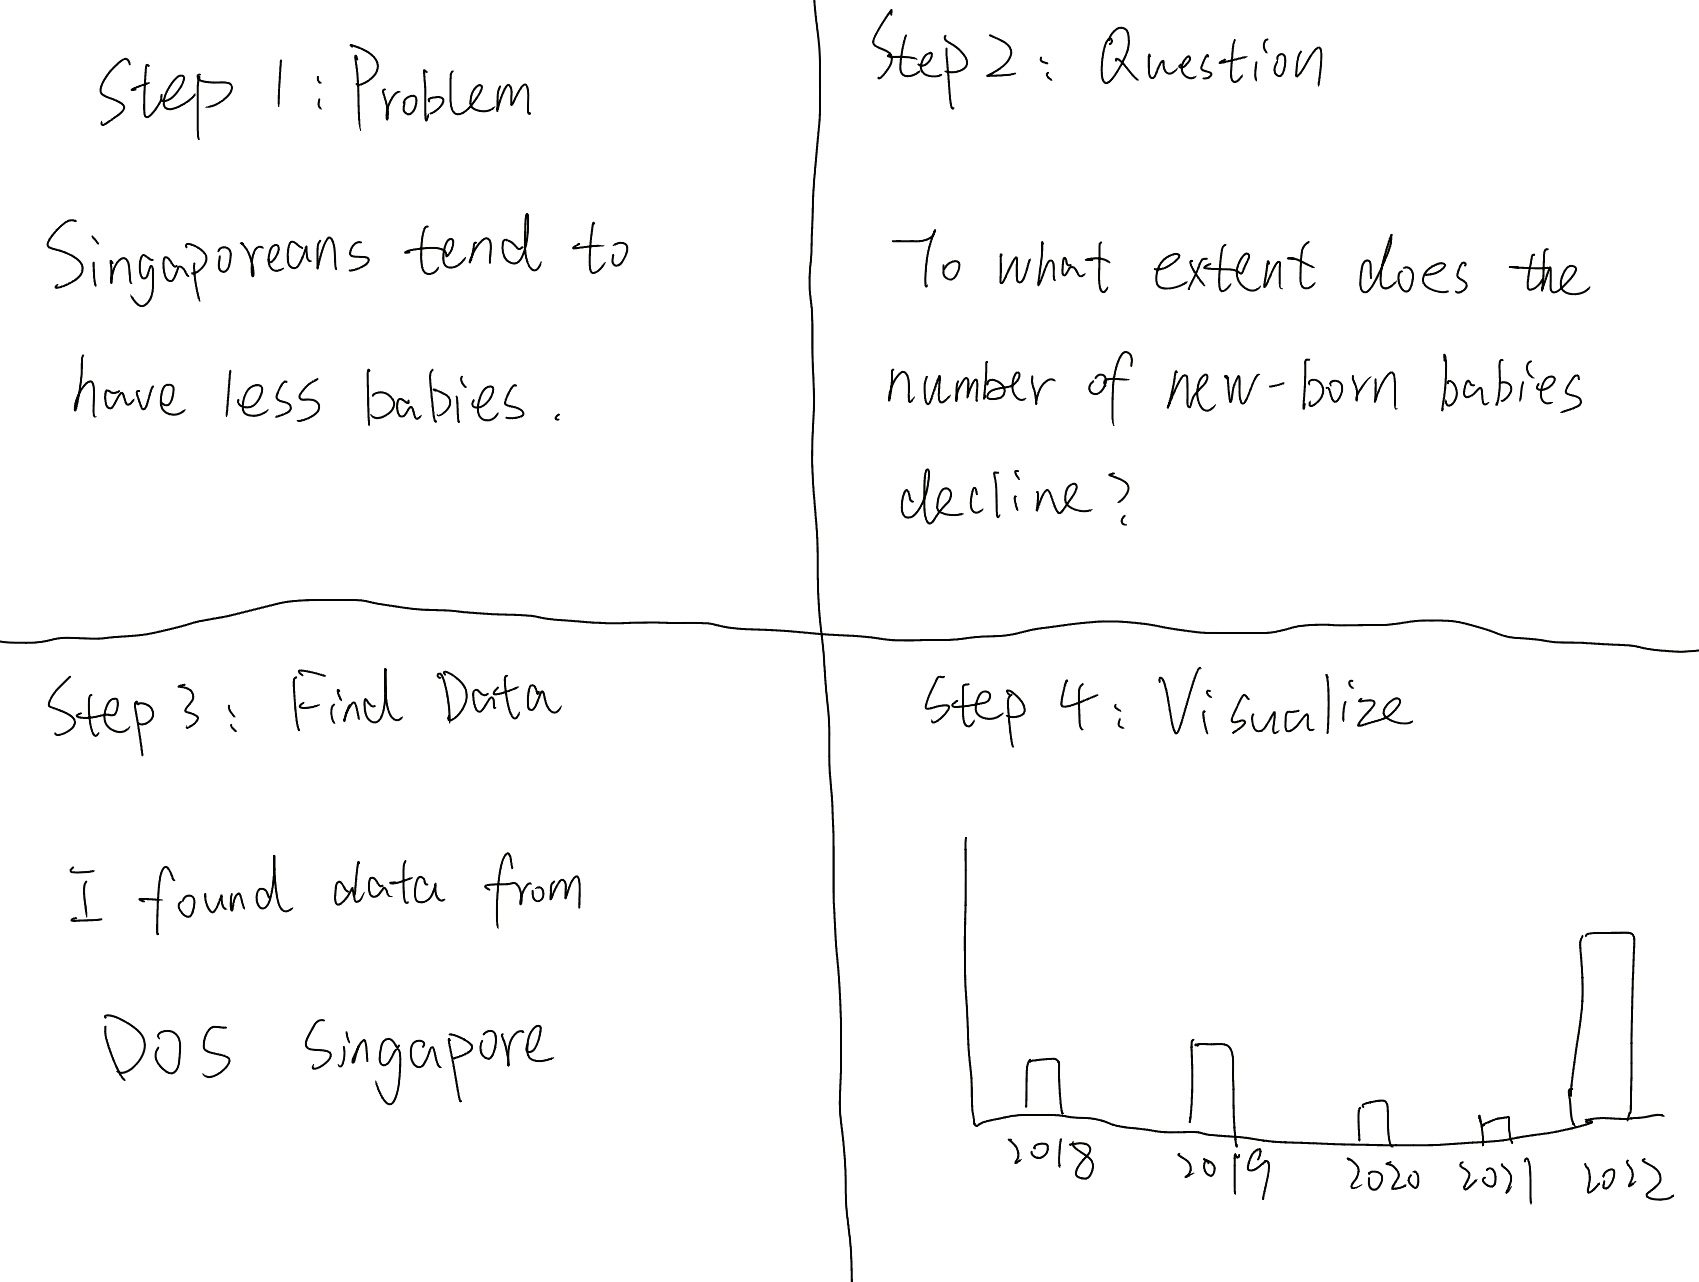 Step 1: Problem
Singaporeans tend to
have less babies.
Step 2: Question
To what extent does the
number of new-born babies
decline?
Step 3: Find Data
I found data from
DOS Singapore
Step 4: Visualize
2018 2019 2020 2021 2022